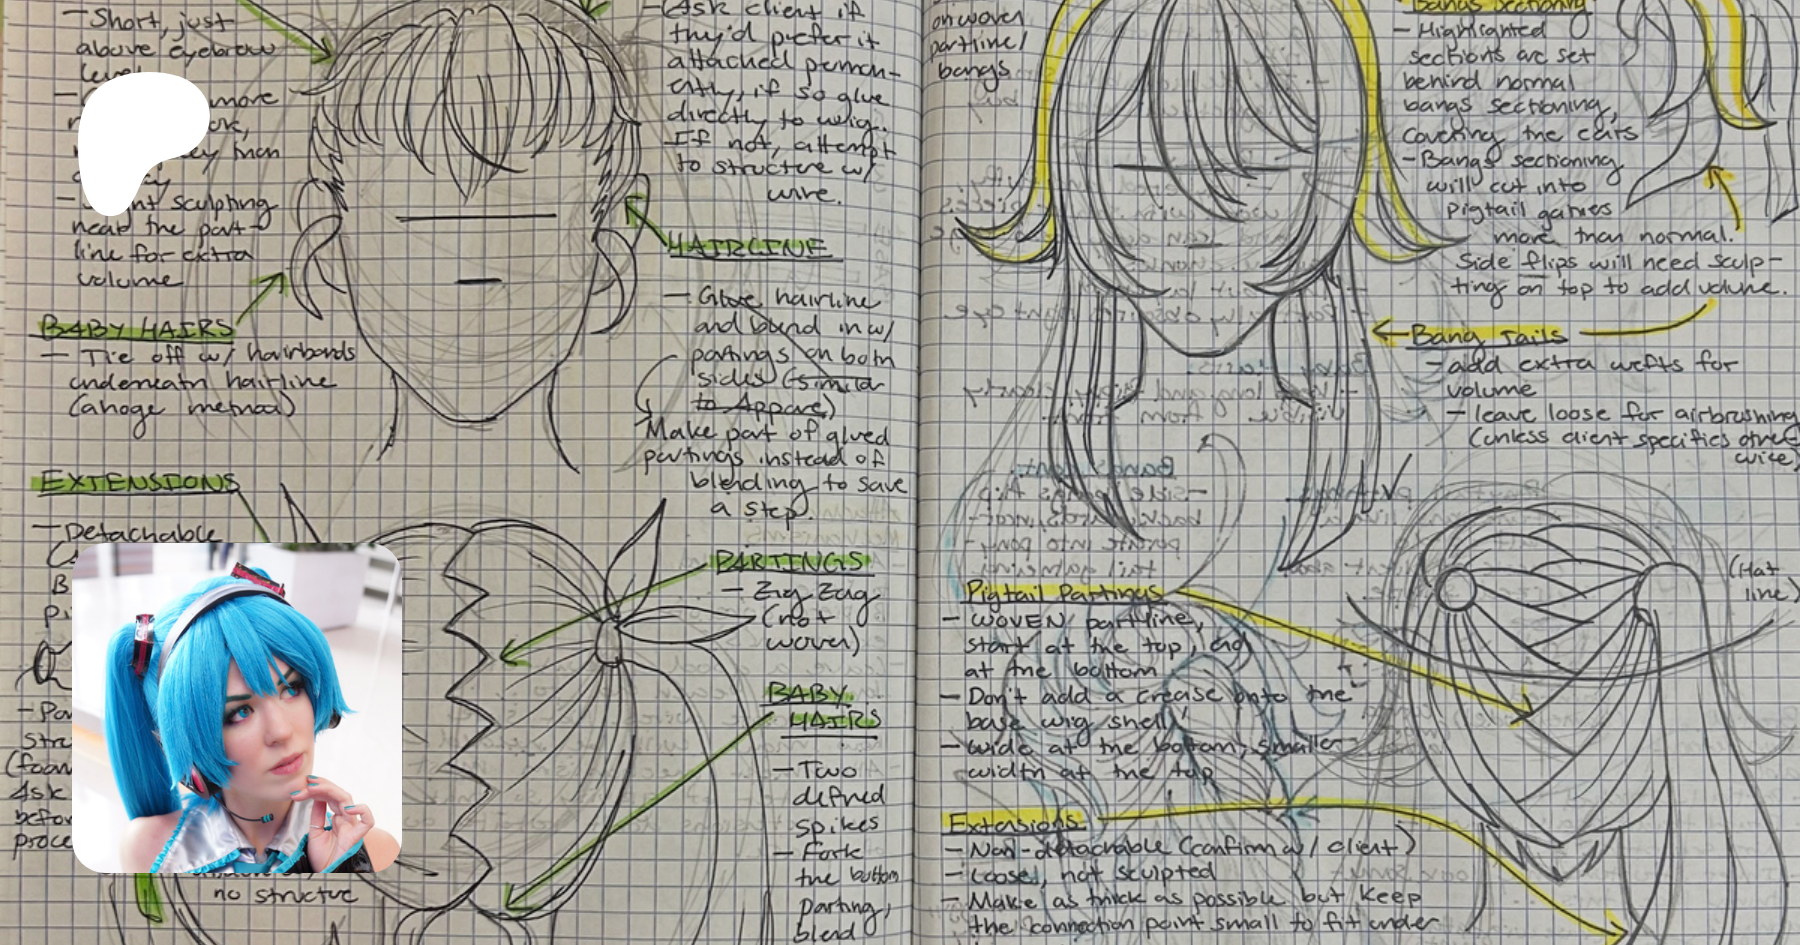 - Short, just
above eyebrow
level
more
- slight sculpting
near the part-
line for extra
volume
BABY HAIRS
- Tie off w/ hairbands
underneath hairline
(ahoge method)
EXTENSIONS
- Detachable
no structure
- Ask client if
they'd prefer it
attached perman-
ently, if so glue
directly to wig.
If not, attempt
to structure w/
wire.
HAIRLINE
- Glue hairline
and blend in w/
partings on both
sides (similar
to Appare)
Make part of glued
partings instead of
blending to save
a step.
PARTINGS
- Zig Zag
(not
woven)
BABY
HAIRS
- Two
defined
spikes
- Fork
the bottom
parting,
blend
on woven
partline/
bangs
Bangs Sectioning
- Highlighted
sections are set
behind normal
bangs sectioning,
covering the ears
- Bangs sectioning
will cut into
pigtail gathers
more than normal.
Side flips will need sculp-
ting on top to add volume.
Bang Tails
- add extra wefts for
volume
- leave loose for airbrushing
(unless client specifies other
wise)
(Hat
line)
Pigtail Partings
- WOVEN partline,
start at the top, end
at the bottom
- Don't add a crease onto the
base wig shell!
- wide at the bottom, smaller
width at the top
Extensions
- Non-detachable (confirm w/ client)
- Loose, not sculpted
- Make as thick as possible but keep
the connection point small to fit under